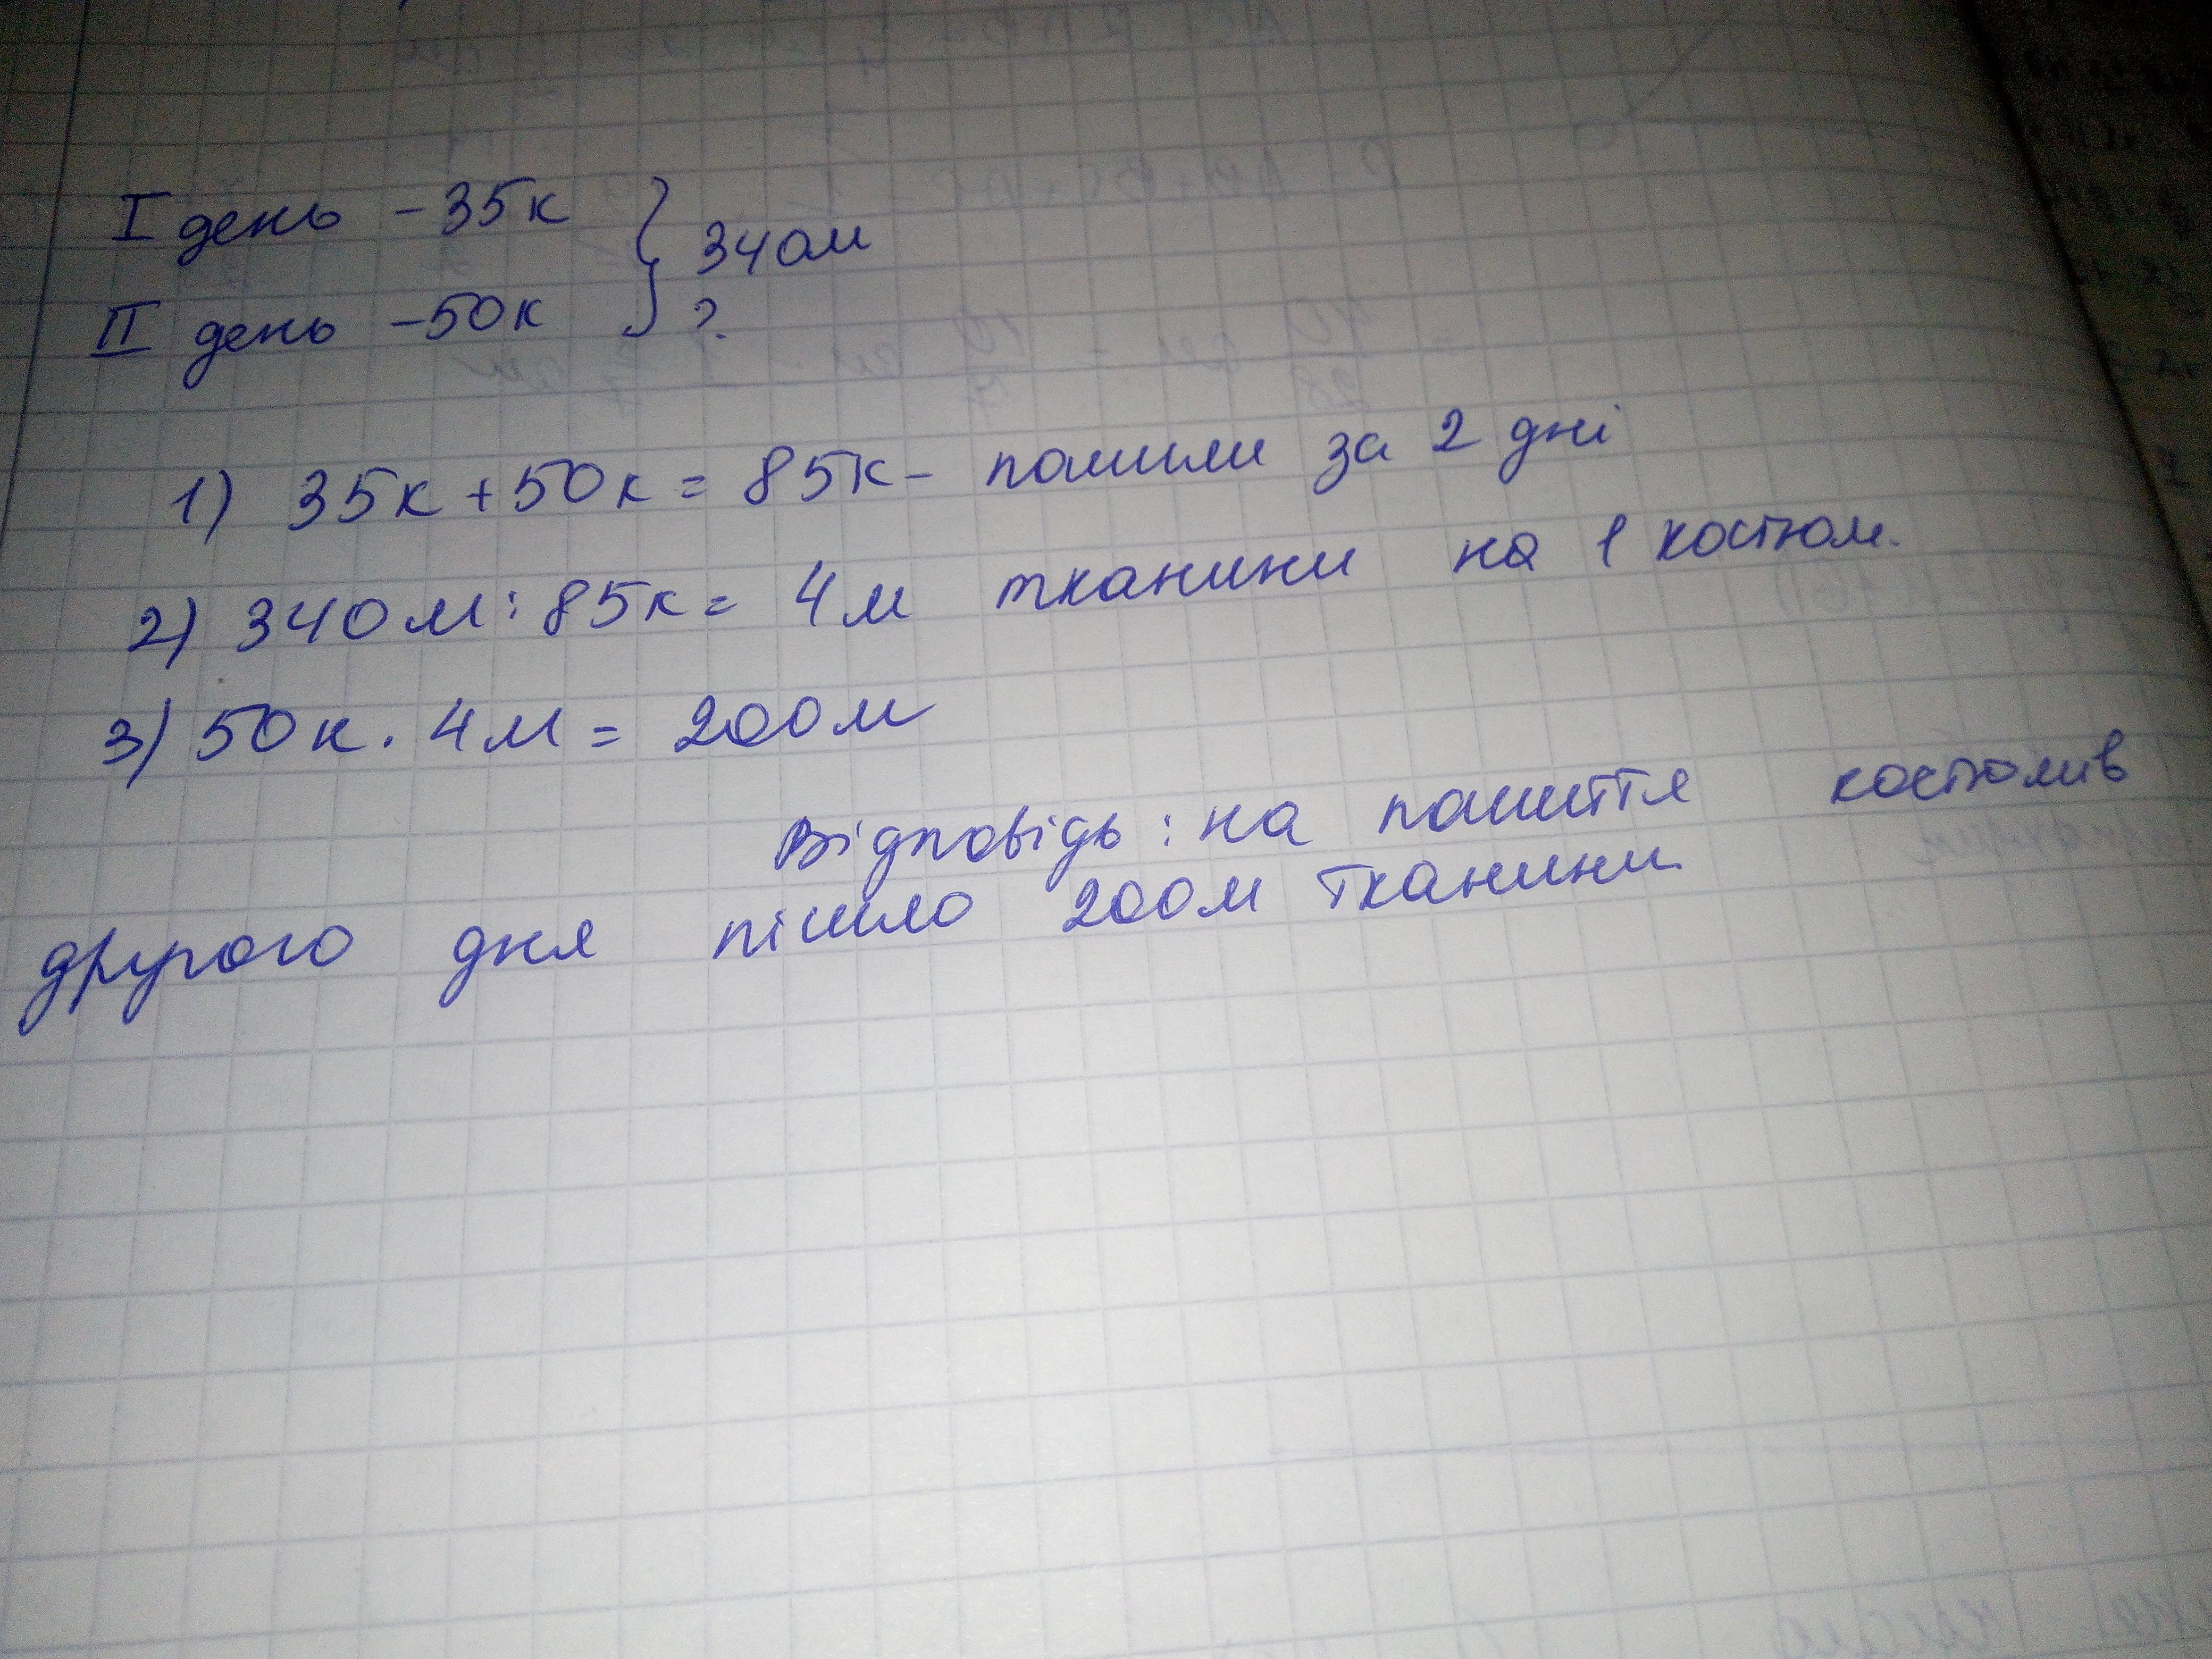 I день - 35к } 340м
II день - 50к ?
1) 35к + 50к = 85к - пошили за 2 дні
2) 340м : 85к = 4м тканини на 1 костюм.
3) 50к · 4м = 200м
Відповідь: на пошиття костюмів
другого дня пішло 200м тканини.